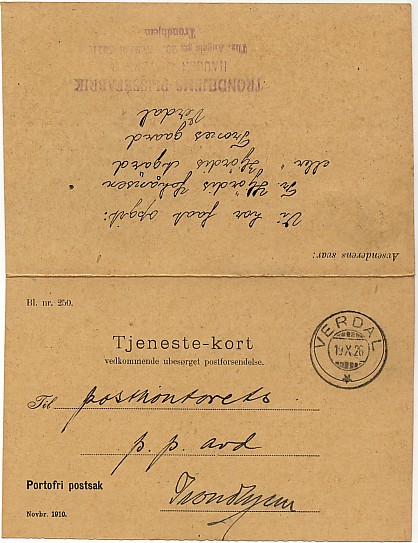 Bl. nr. 250.
Tjeneste-kort
vedkommende ubesørget postforsendelse.
VERDAL
19 X 26
Til postkontorets
p. p. avd
Trondhjem
Portofri postsak
Novbr. 1910.
Avsenderens svar:
Vi har faat opgit:
Fr. Hjördis Johansen
eller " Hjördis Agard
Trones gaard
Verdal
TRONDHJEMS PLISSÉFABRIK
HAUGEN
Tho. Angells gt.
Trondhjem